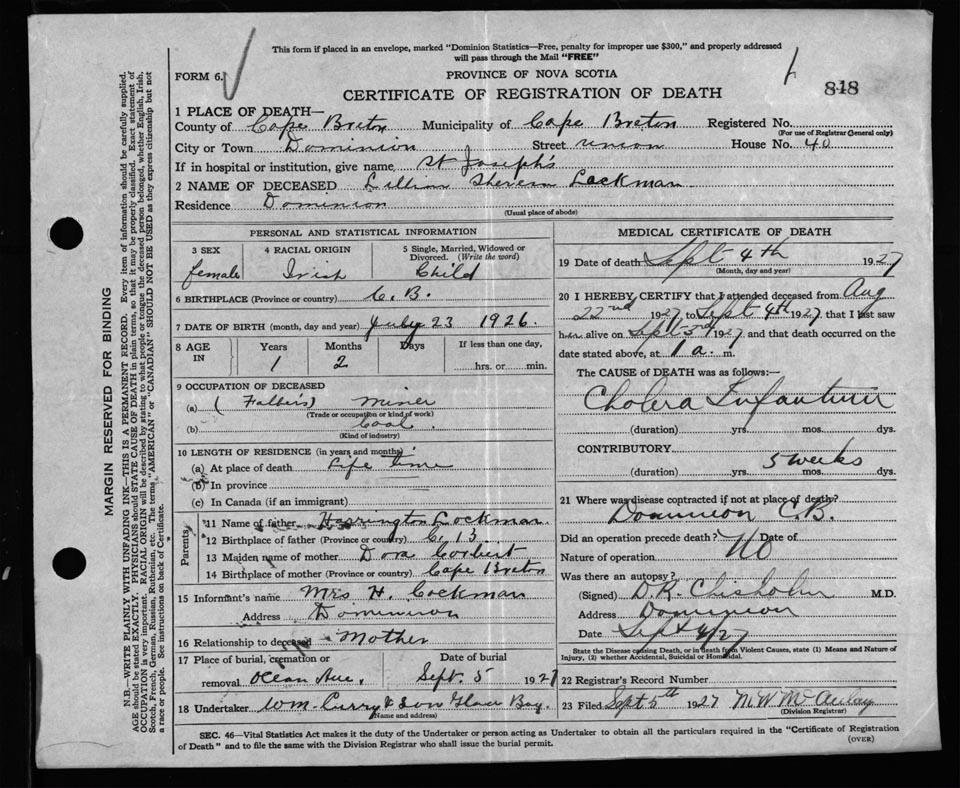 This form if placed in an envelope, marked "Dominion Statistics—Free, penalty for improper use $300," and properly addressed
will pass through the Mail "FREE"
FORM 6.
PROVINCE OF NOVA SCOTIA
CERTIFICATE OF REGISTRATION OF DEATH
818
1 PLACE OF DEATH—
County of Cape Breton Municipality of Cape Breton Registered No.
(For use of Registrar General only)
City or Town Dominion Street Union House No. 40
If in hospital or institution, give name St Joseph's
2 NAME OF DECEASED Lillian Lockman
Residence Dominion
(Usual place of abode)
PERSONAL AND STATISTICAL INFORMATION
3 SEX 4 RACIAL ORIGIN 5 Single, Married, Widowed or
Divorced. (Write the word)
female Irish Child
6 BIRTHPLACE (Province or country) C.B.
7 DATE OF BIRTH (month, day and year) July 23 1926.
8 AGE IN Years Months Days If less than one day,
1 2 hrs. or min.
9 OCCUPATION OF DECEASED
(a) (Father's) Miner
(Trade or occupation or kind of work)
(b) Coal.
(Kind of industry)
10 LENGTH OF RESIDENCE (in years and months)
(a) At place of death Life time
(b) In province
(c) In Canada (if an immigrant)
Parents
11 Name of father Harrington Lockman
12 Birthplace of father (Province or country) C.B
13 Maiden name of mother Dora Corbert
14 Birthplace of mother (Province or country) Cape Breton
15 Informant's name Mrs H. Lockman
Address Dominion
16 Relationship to deceased Mother
17 Place of burial, cremation or Date of burial
removal Ocean Ave. Sept. 5 1927
18 Undertaker Wm. Curry & Son Glace Bay.
(Name and address)
MEDICAL CERTIFICATE OF DEATH
19 Date of death Sept 4th 1927
(Month, day and year)
20 I HEREBY CERTIFY that I attended deceased from Aug
22nd 1927 to Sept 4th 1927 that I last saw
her alive on Sept 3rd 1927 and that death occurred on the
date stated above, at 1 a. m.
The CAUSE of DEATH was as follows:—
Cholera Infantum
(duration) yrs. mos. dys.
CONTRIBUTORY
5 weeks
(duration) yrs. mos. dys.
21 Where was disease contracted if not at place of death?
Dominion C.B.
Did an operation precede death? No Date of
Nature of operation
Was there an autopsy?
(Signed) D.R. Chisholm M.D.
Address Dominion
Date Sept 4/27
State the Disease causing Death, or in death from Violent Causes, state (1) Means and Nature of
Injury, (2) whether Accidental, Suicidal or Homicidal.
22 Registrar's Record Number
23 Filed Sept 5th 1927 M W McAulay
(Division Registrar)
SEC. 46—Vital Statistics Act makes it the duty of the Undertaker or person acting as Undertaker to obtain all the particulars required in the "Certificate of Registration
of Death" and to file the same with the Division Registrar who shall issue the burial permit.
(OVER)
MARGIN RESERVED FOR BINDING
N.B.—WRITE PLAINLY WITH UNFADING INK—THIS IS A PERMANENT RECORD. Every item of information should be carefully supplied.
AGE should be stated EXACTLY. PHYSICIANS should STATE CAUSE OF DEATH in plain terms, so that it may be properly classified. Exact statement of
OCCUPATION is very important. RACIAL ORIGIN will be described by stating to what people or tongue the deceased person belonged, whether English, Irish,
Scotch, French, German, Russian, Ruthenian, etc. The terms "AMERICAN" or "CANADIAN" SHOULD NOT BE USED as they express citizenship but not
a race or people. See instructions on back of Certificate.